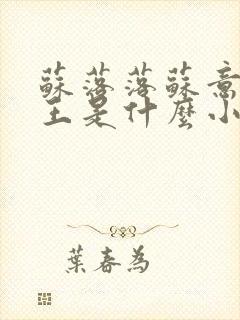 蘇落落蘇意
主是什麼小
葉春為